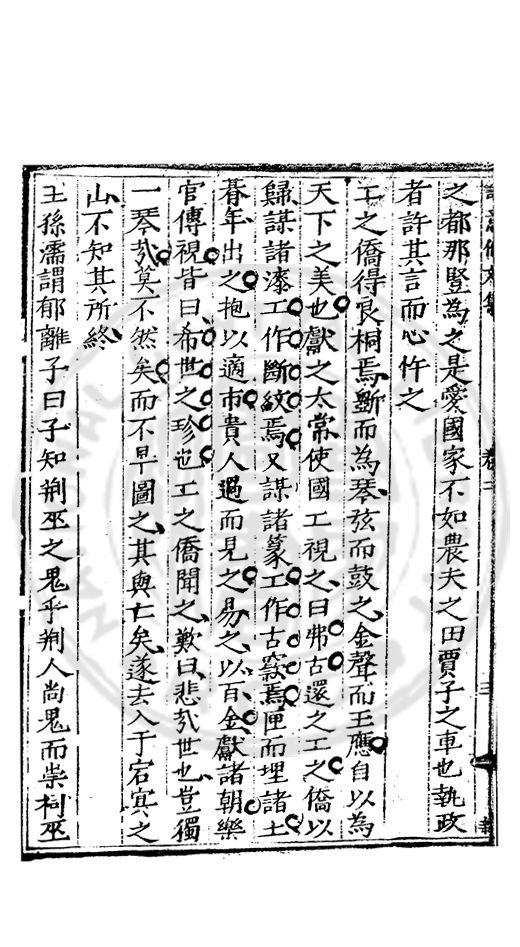 之都那豎為之是愛國家不如農夫之田賈子之車也執政
者許其言而心忤之
工之僑得良桐焉斲而為琴弦而鼓之金聲而玉應自以為
天下之美也獻之太常使國工視之曰弗古還之工之僑以
歸謀諸漆工作斷紋焉又謀諸篆工作古窾焉匣而埋諸土
朞年出之抱以適市貴人過而見之易之以百金獻諸朝樂
官傳視皆曰希世之珍也工之僑聞之歎曰悲㢤世也豈獨
一琴㢤莫不然矣而不早圖之其與亡矣遂去入于宕冥之
山不知其所終
王孫濡謂郁離子曰子知荆巫之鬼乎荆人尚鬼而崇祠巫